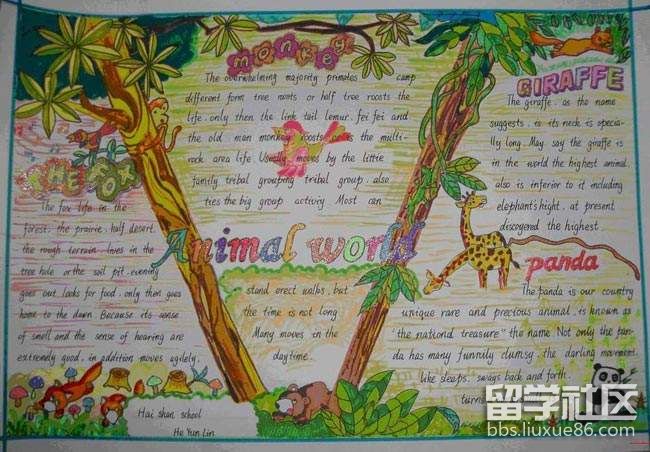 monkey
The overwhelming majority primates camp
different form tree nants or half tree roosts the
life, only then the link tail lemur, fei fei and
the old man monkey roosts or is the multi-
rock area life. Usually moves by the little
family tribal grouping tribal group also
ties the big group activiy. Most can
stand erect walks, but
the time is not long
Many moves in the
daytime.
GIRAFFE
The giraffe, as the name
suggests, is its neck is specia-
lly long. May say the giraffe is
in the world the highest animal,
also is inferior to it including
elephant's hight, at present
discoyered the highest.
THE FOX
The fox life in the
forest, the prairie, half desert,
the rough terrain, lives in the
tree hole or the soil pit, evening
goes out looks for food, only then goes
home to the dawn. Because its sense
of smell and the sense of hearing are
extremely good, in addition moves agilely.
Animal world
panda
The panda is our country
unique rare and precious animal, is known as
"the nationd treasure" the name. Not only the pan-
da has many funnily clumsy, the darling movement,
like sleeps, sways back and forth,
turns
Hai shan school
He Yun Lin
留学社区
bbs.liuxue86.com